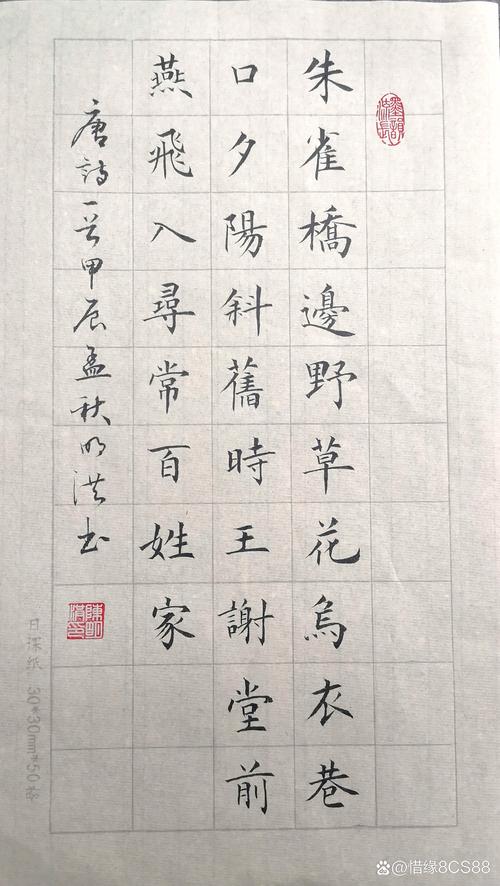 朱雀橋邊野草花烏衣巷
口夕陽斜舊時王謝堂前
燕飛入尋常百姓家
唐詩一首甲辰孟秋明洪书
日课纸 30*30mm*50格
@惜缘8CS88